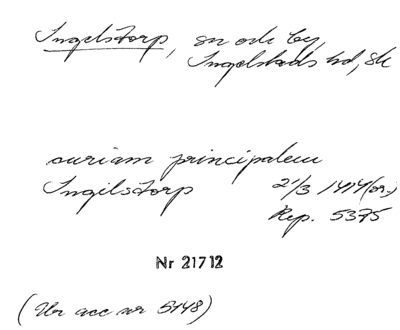 Ingelstorp, sn och by,
Ingelstads hd, Sk
curiam principalem
Ingilstorp 21/3 1414 (or.)
Rep. 5375
Nr 21712
(Ur acc nr 5148)